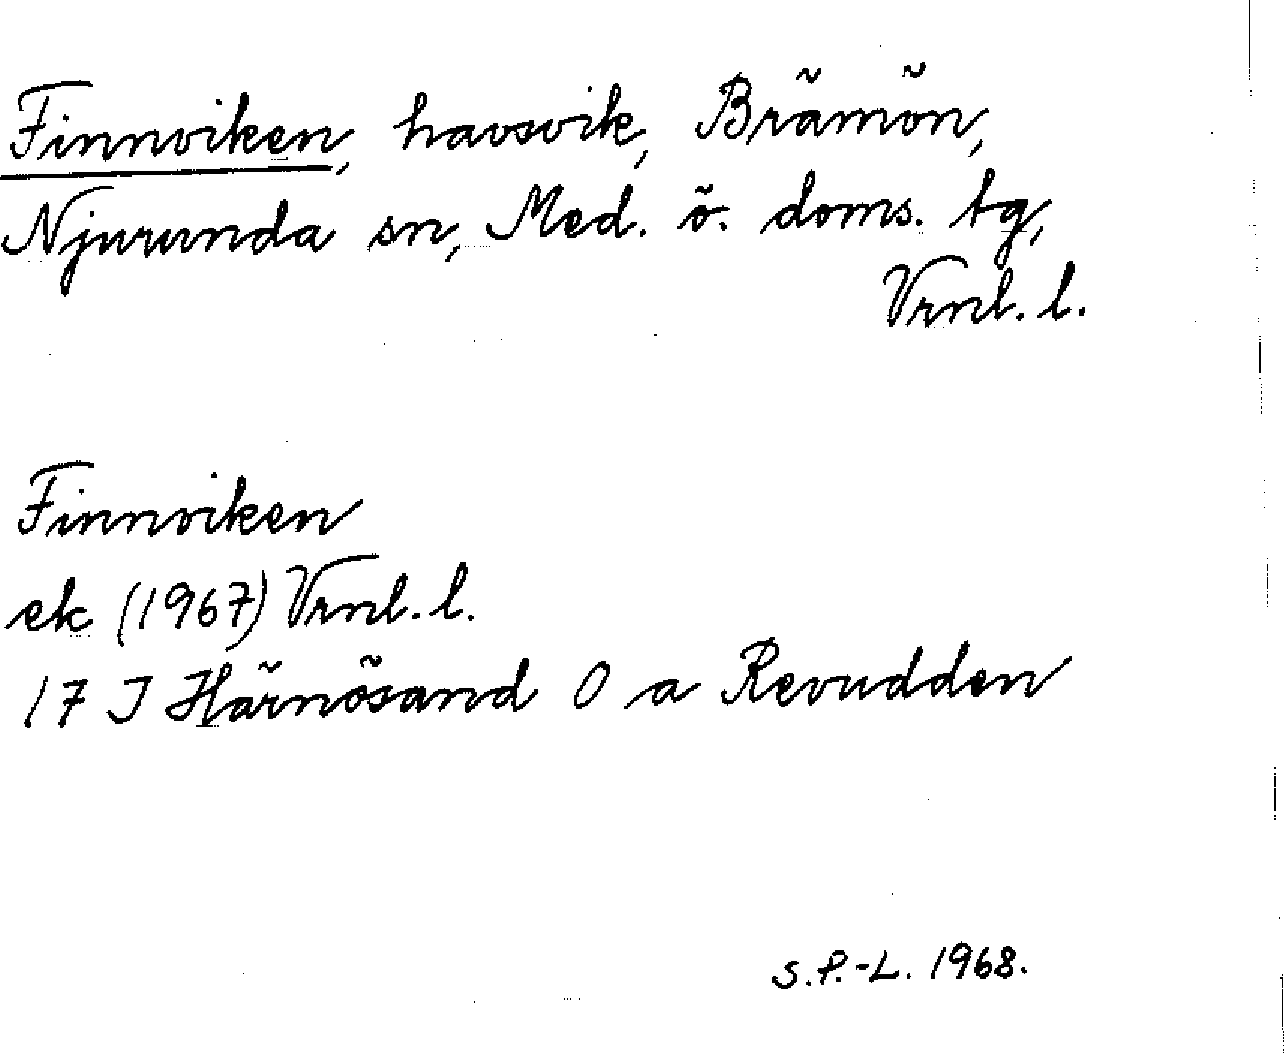 Finnviken, havsvik, Brämön,
Njurunda sn, Med. ö. doms. tg,
Vrnl. l.
Finnviken
ek (1967) Vrnl. l.
17 I Härnösand O a Revudden
S.P.-L. 1968.